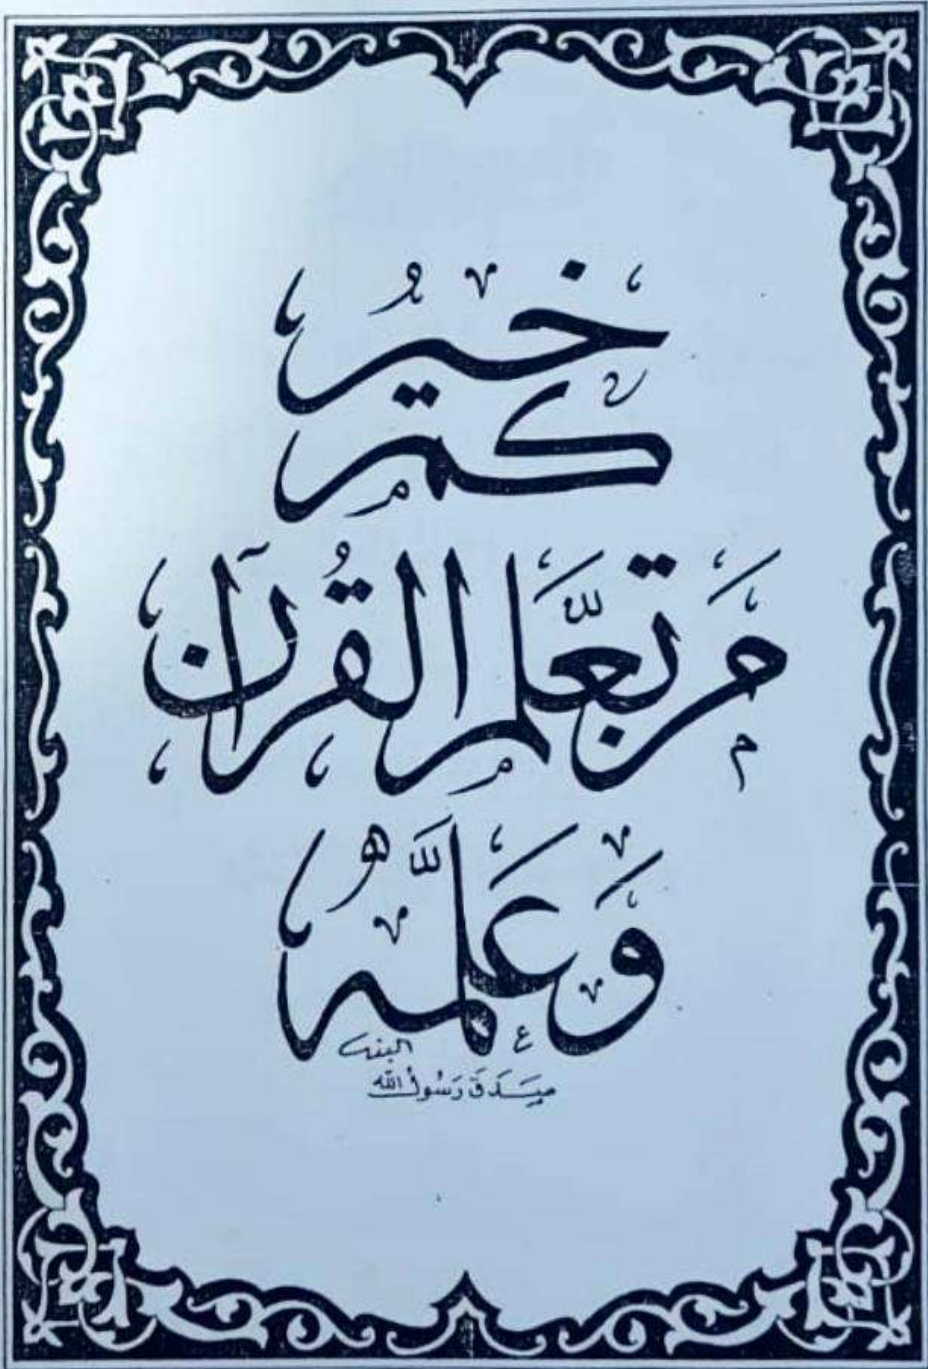 خَيْرُ
كُمْ
مَنْ تَعَلَّمَ الْقُرْآنَ
وَعَلَّمَهُ
صَدَقَ رَسُولُ اللهِ